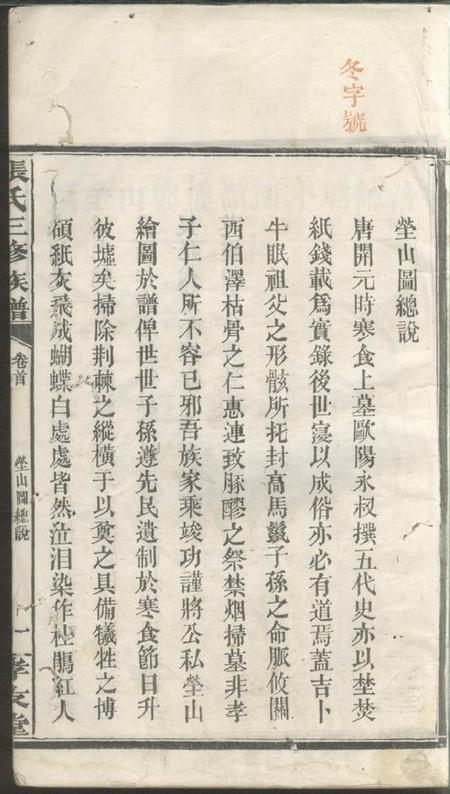 冬字號
塋山圖總說
唐開元時寒食上墓歐陽永叔撰五代史亦以埜焚
紙錢載爲實錄後世寖以成俗亦必有道焉蓋吉卜
牛眠祖父之形骸所托封高馬鬛子孫之命脈攸關
西伯澤枯骨之仁惠連致豚醪之祭禁烟掃墓非孝
子仁人所不容已邪吾族家乘竣功謹將公私塋山
繪圖於譜俾世世子孫遵先民遺制於寒食節日升
彼墟矣掃除荆棘之縱橫于以奠之具備犧牲之博
碩紙灰飛成蝴蝶白處處皆然泣泪染作杜鵑紅人
張氏三修族譜
卷首
塋山圖總說
一
孝友堂